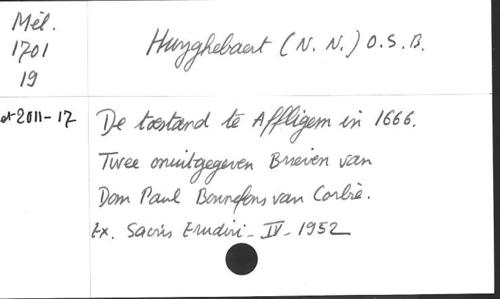 Mél.
1701
19
et 2011-17
Huyghebaert (N. N.) O.S.B.
De toestand te Affligem in 1666.
Twee onuitgegeven Brieven van
Dom Paul Bonnefons van Corbie.
Ex. Sacris Erudiri - IV - 1952